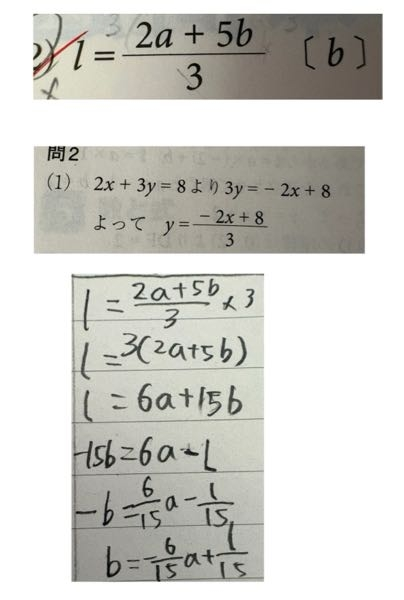 2) l = \frac{2a + 5b}{3} 〔 b 〕
問2
(1) 2x + 3y = 8 より 3y = - 2x + 8
よって y = \frac{- 2x + 8}{3}
l = \frac{2a+5b}{3} × 3
l = 3(2a+5b)
l = 6a+15b
-15b = 6a - l
-b = \frac{6}{15}a - \frac{l}{15}
b = -\frac{6}{15}a + \frac{l}{15}